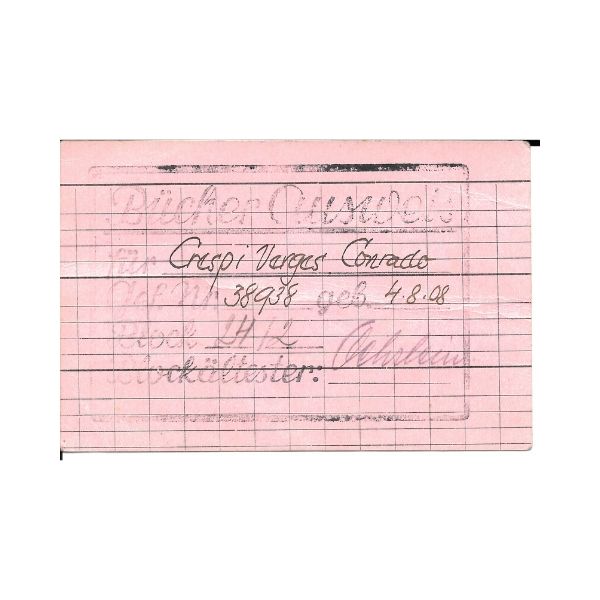 Bücher Ausweis
für Crespi Vargas Conrado
Hef. Nr. 38938 geb. 4.8.08
Block 24/2
Blockältester: